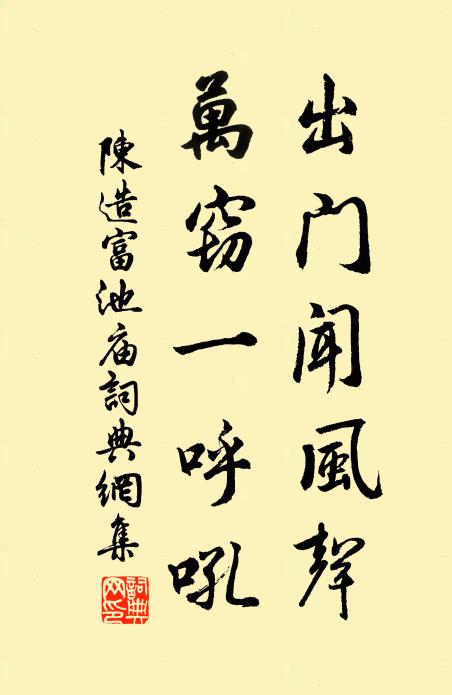 出门闻風聲
萬窍一呼吼
陳造富池庙詞典網集
詞典
网印